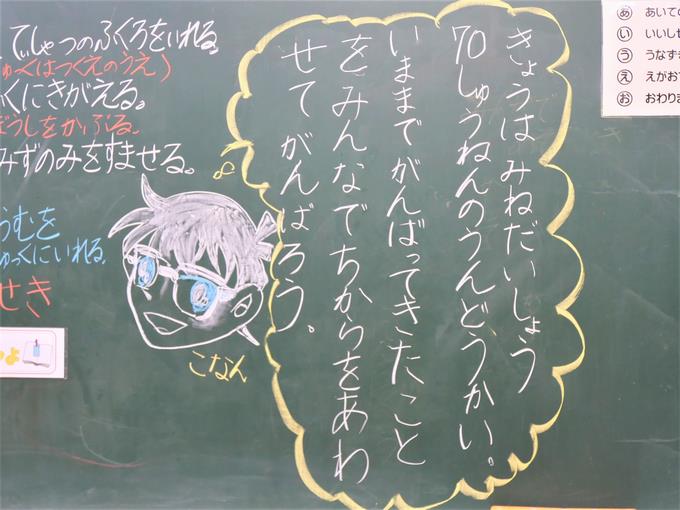 きょうは みねだいしょう
70しゅうねんのうんどうかい。
いままでがんばってきたこと
をみんなでちからをあわ
せてがんばろう。
こなん
てぃしゃつのふくろをいれる。
ゅっくはつくえのうえ)
くにきがえる。
うしをかぶる。
みずのみをすませる。
うむを
ゅっくにいれる。
せき
あ あいての
い いいしせ
う うなずき
え えがおで
お おわりま